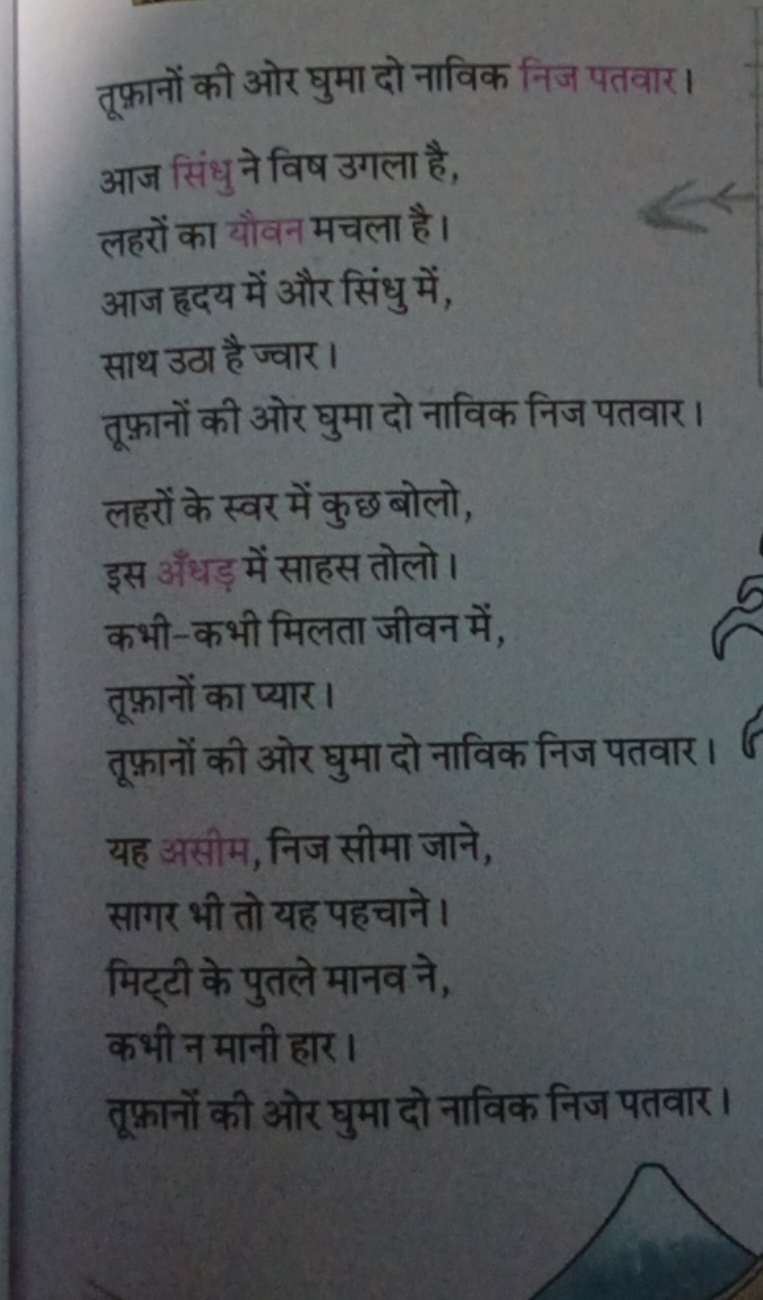 तूफ़ानों की ओर घुमा दो नाविक निज पतवार।
आज सिंधु ने विष उगला है,
लहरों का यौवन मचला है।
आज हृदय में और सिंधु में,
साथ उठा है ज्वार।
तूफ़ानों की ओर घुमा दो नाविक निज पतवार।
लहरों के स्वर में कुछ बोलो,
इस अँधड़ में साहस तोलो।
कभी-कभी मिलता जीवन में,
तूफ़ानों का प्यार।
तूफ़ानों की ओर घुमा दो नाविक निज पतवार।
यह असीम, निज सीमा जाने,
सागर भी तो यह पहचाने।
मिट्टी के पुतले मानव ने,
कभी न मानी हार।
तूफ़ानों की ओर घुमा दो नाविक निज पतवार।